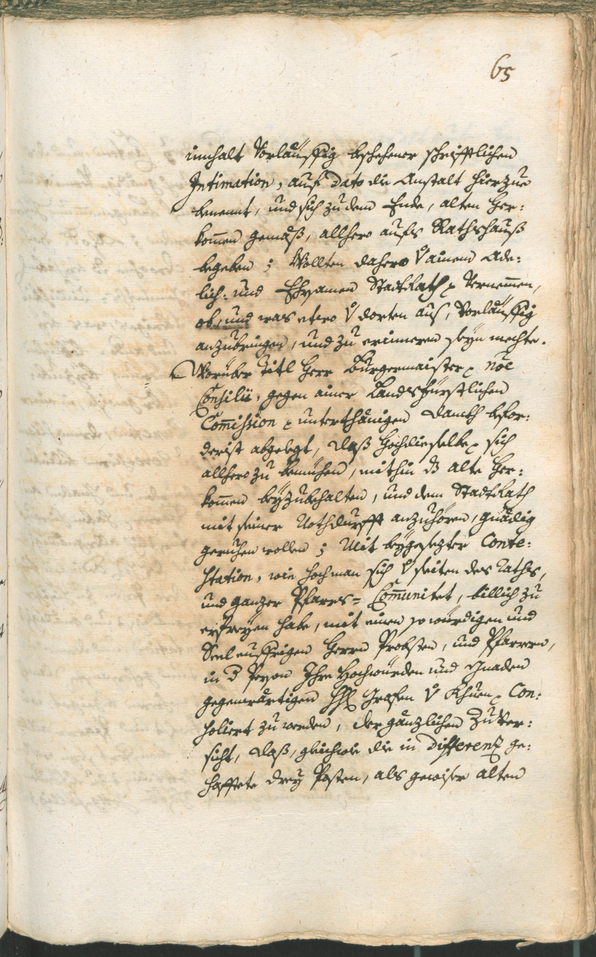 65
innhalt Vorläuffig beschehener schrifftlichen
Intimation, auf dato die Anstalt hierzue
benennt, und sich zu dem Ende, alten her:
kommen gemäß, allhero aufs Rathshauß
begeben; Wollten dahero V. ainem Ade:
lich: und Ehrsamen StadtRath p. Vernemmen,
ob, und was etwo V. dorten aus, Vorläuffig
anzubringen, und zu erinneren seyn mechte.
Worüber titl Herr Burgermaister p. nōe
Consilii, gegen ainer Landsfürstlichen
Commission p. unterthänigen Danckh befor:
derist abgelegt, daß hochdieselbe p. sich
allhero zu bemühen, mithin dz alte Her:
kommen beyzubehalten, und dem StadtRath
mit seiner Nothdurfft anzuhören, gnädig
geruhen wollen; Mit beygesezter Conte:
station, wie hoch man sich V. seiten des Raths,
und ganzer Pfarrs= Communitet, billich zu
erfreyen habe, mit einen so würdigen und
Seel eyffrigen Herrn Probsten, und Pfarrern,
in d. Person Ihro Hochwürden und Gnaden
gegenwärtigen Grafen V. Khüen p. Con:
soliert zu werden, der gänzlichen Zuver:
sicht, daß, gleichwie die in Differenz ge:
hafftete drey Posten, als gewiser alten